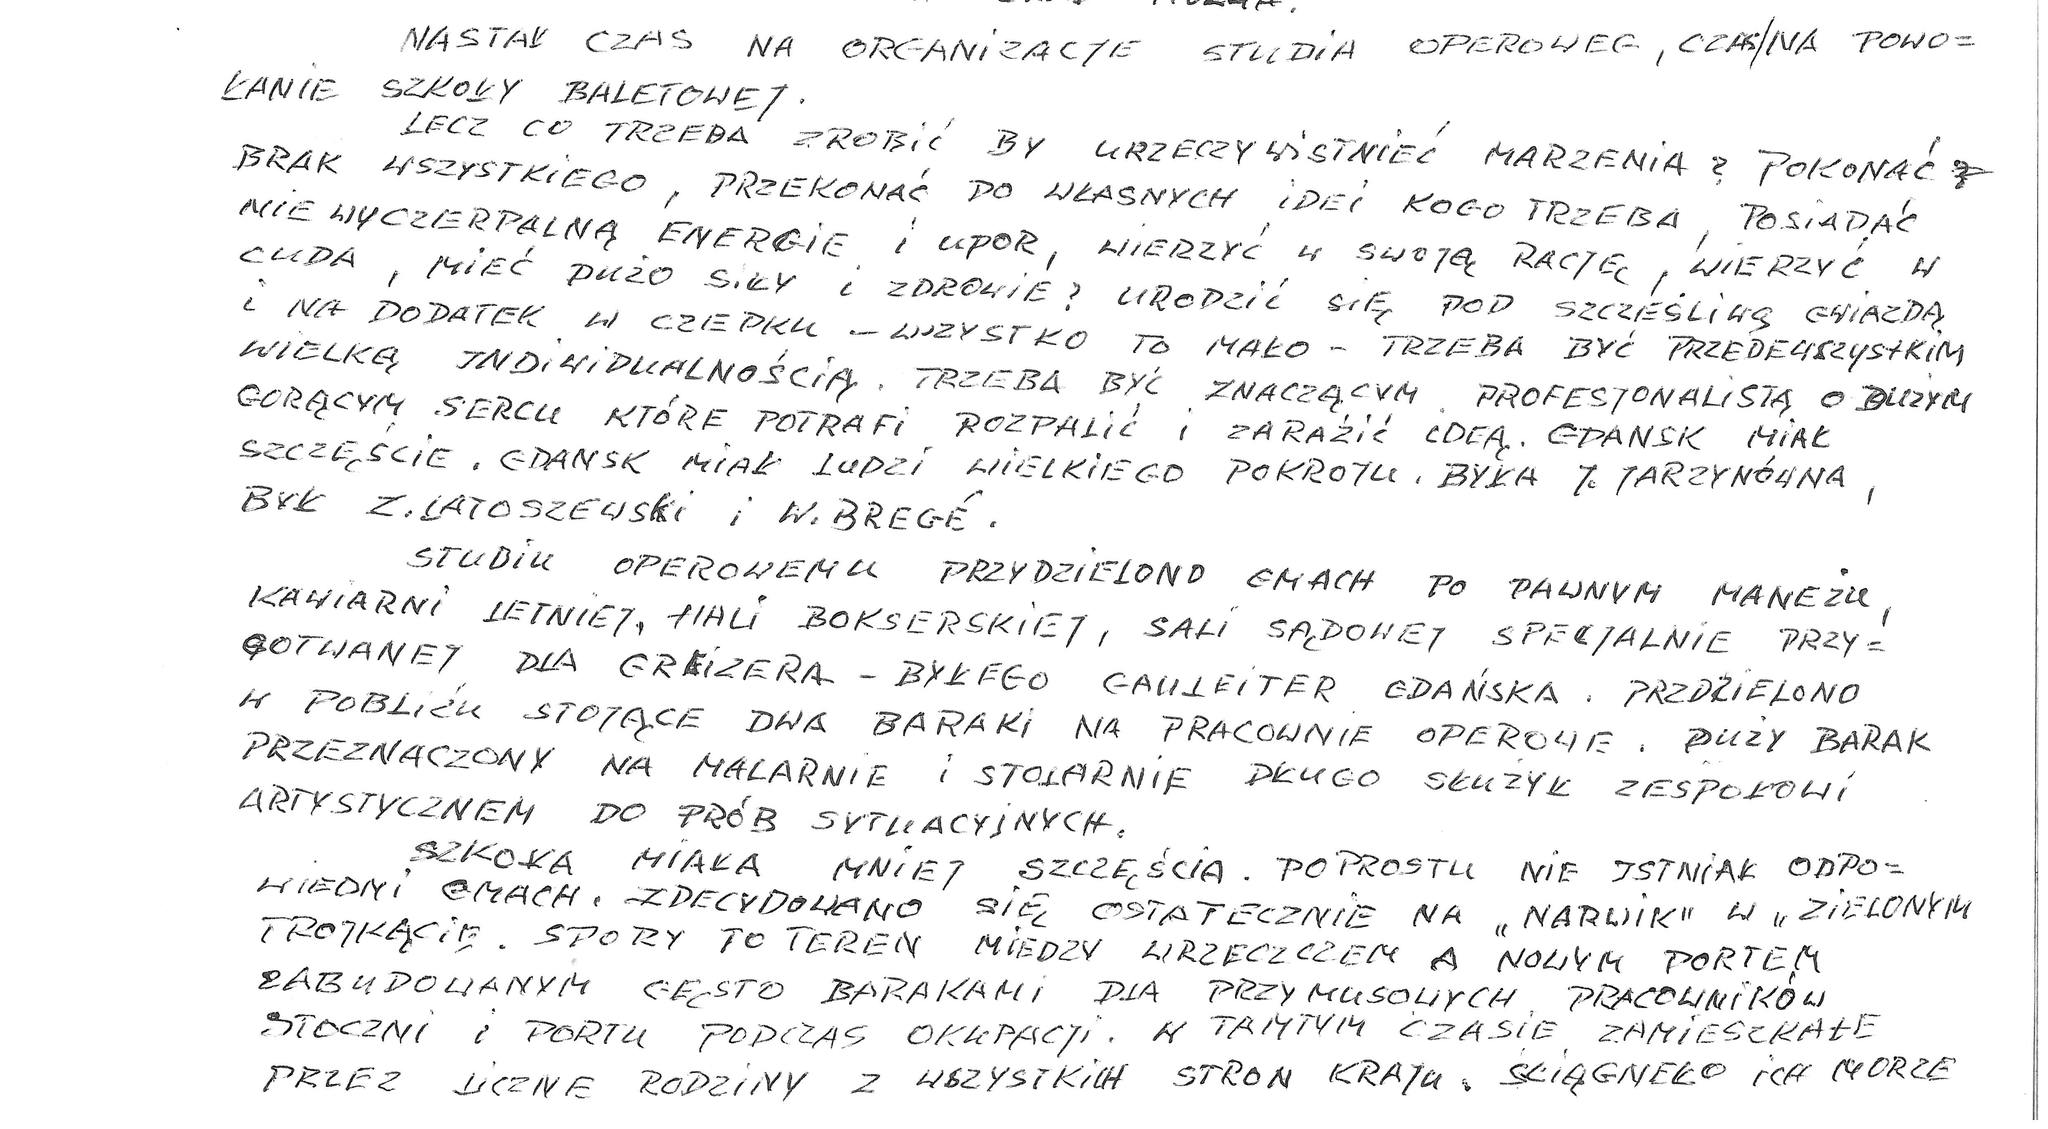 NASTAŁ CZAS NA ORGANIZACJE STUDIA OPEROWEG, CZAS/NA POWO=
ŁANIE SZKOŁY BALETOWEJ.
LECZ CO TRZEBA ZROBIĆ BY URZECZYWISTNIEĆ MARZENIA? POKONAĆ
BRAK WSZYSTKIEGO, PRZEKONAĆ DO WŁASNYCH IDEI KOGO TRZEBA, POSIADAĆ
NIEWYCZERPALNĄ ENERGIE I UPOR, WIERZYĆ W SWOJĄ RACJĘ, WIERZYĆ W
CUDA, MIEĆ DUŻO SIŁY I ZDROWIE? URODZIĆ SIĘ POD SZCZEŚLIWĄ GWIAZDĄ
I NA DODATEK W CZEPKU – WSZYSTKO TO MAŁO – TRZEBA BYĆ PRZEDEWSZYSTKIM
WIELKĄ INDIWIDUALNOŚCIĄ. TRZEBA BYĆ ZNACZĄCYM PROFESJONALISTĄ O DUŻYM
GORĄCYM SERCU KTÓRE POTRAFI ROZPALIĆ I ZARAŹIĆ IDEĄ. GDANSK MIAŁ
SZCZĘŚCIE. GDANSK MIAŁ LUDZI WIELKIEGO POKROJU. BYŁA J. JARZYNÓWNA,
BYŁ Z. LATOSZEWSKI I W. BREGÉ.
STUDIU OPEROWEMU PRZYDZIELONO GMACH PO DAWNYM MANEŻU,
KAWIARNI LETNIEJ, HALI BOKSERSKIEJ, SALI SĄDOWEJ SPECJALNIE PRZY=
GOTWANEJ DLA GREIZERA – BYŁEGO GAULEITER GDAŃSKA. PRZDZIELONO
W POBLIĆU STOJĄCE DWA BARAKI NA PRACOWNIE OPEROWE. DUŻY BARAK
PRZEZNACZONY NA MALARNIE I STOLARNIE DŁUGO SŁUŻYŁ ZESPOŁOWI
ARTYSTYCZNEM DO PRÓB SYTUACYJNYCH.
SZKOŁA MIAŁA MNIEJ SZCZĘŚCIA. POPROSTU NIE ISTNIAŁ ODPO=
WIEDNI GMACH. ZDECYDOWANO SIĘ OSTATECZNIE NA „NARWIK" W „ZIELONYM
TROJKĄCIE. SPORY TO TEREN MIEDZY WRZECZCZEM A NOWYM PORTEM
ZABUDOWANYM GĘSTO BARAKAMI DLA PRZYMUSOWYCH PRACOWNIKÓW
STOCZNI I PORTU PODCZAS OKUPACJI. W TAMTYM CZASIE ZAMIESZKAŁE
PRZEZ LICZNE RODZINY Z WSZYSTKICH STRON KRAJU. ŚCIĄGNEŁO ICH MORZE